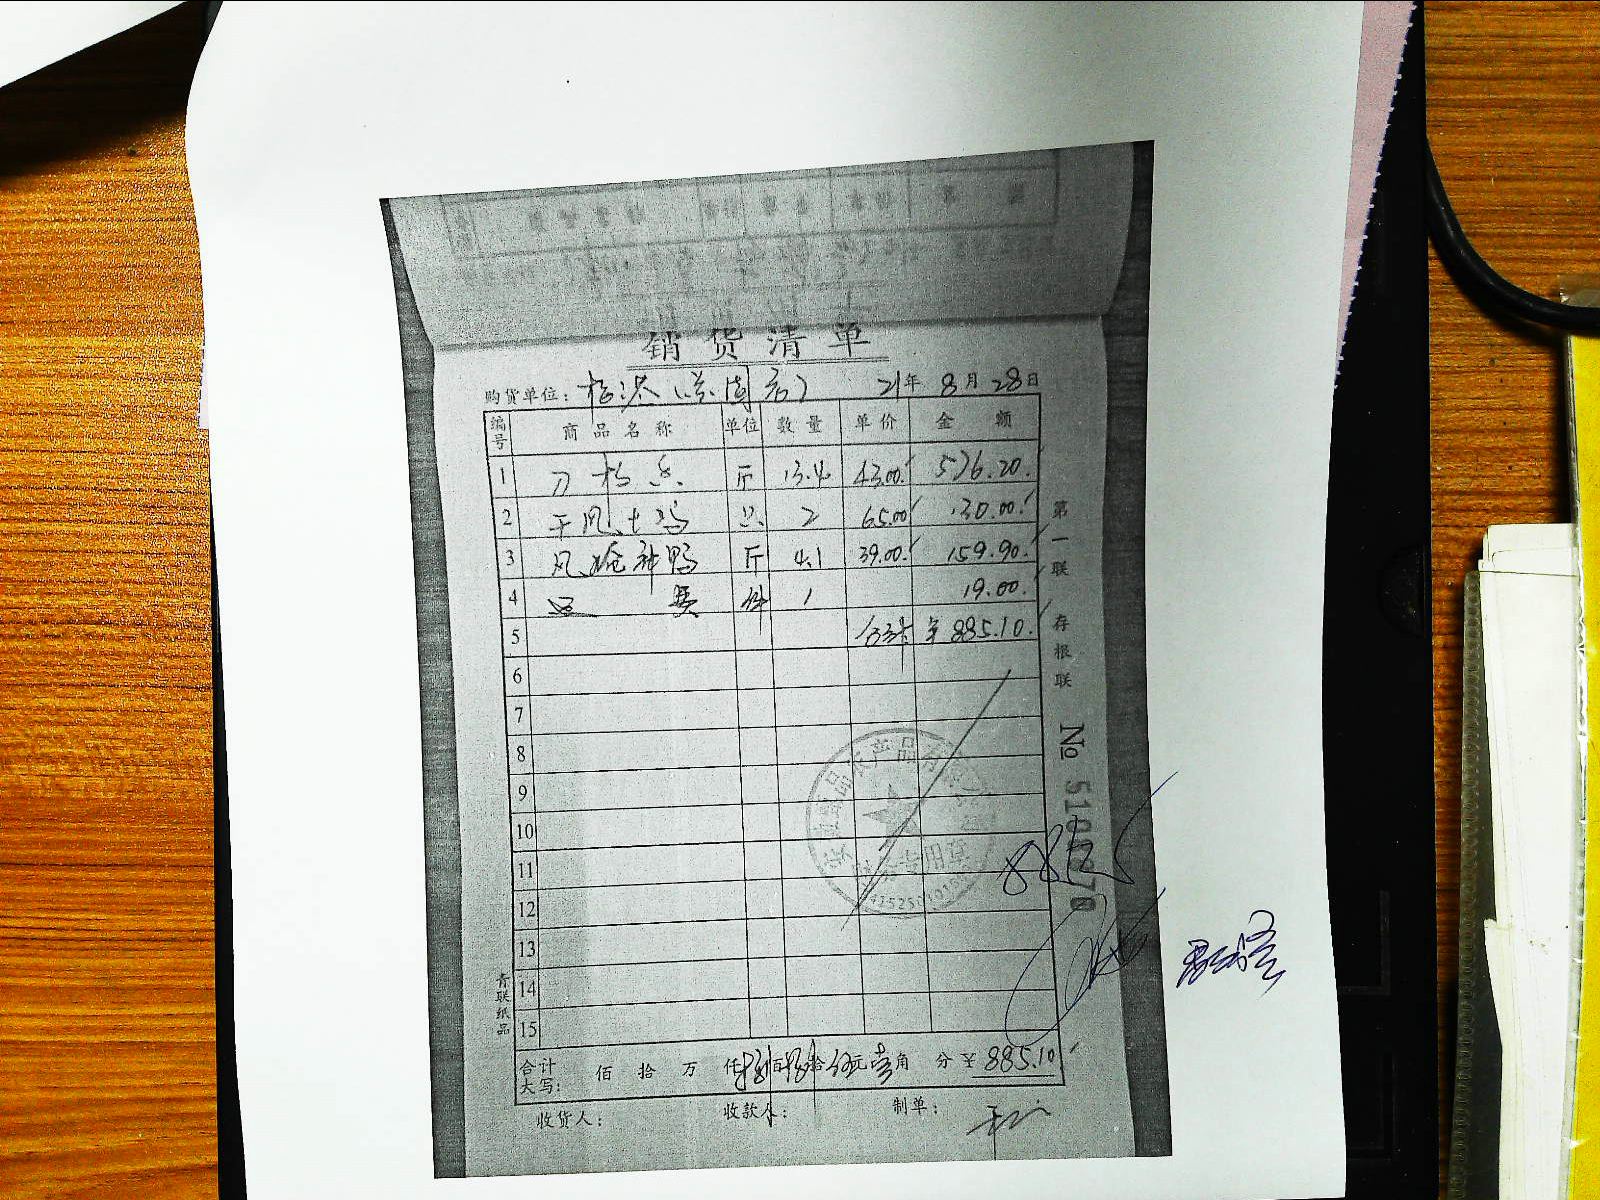 销货清单
购货单位： 21年 8月 28日
编号 商品名称 单位 数量 单价 金额
1 刀板香 斤 13.4 43.00 576.20
2 干风土鸡 只 2 65.00 130.00
3 风 鸭 斤 4.1 39.00 159.90
4 运费 件 1 19.00
5 合计 ¥885.10
6
7
8
9
10
11
12
13
14
15
合计大写： 佰 拾 万 仟 捌佰 捌拾 伍元 壹角 分 ¥ 885.10
收货人： 收款人： 制单：
第一联 存根联
No
青联纸品